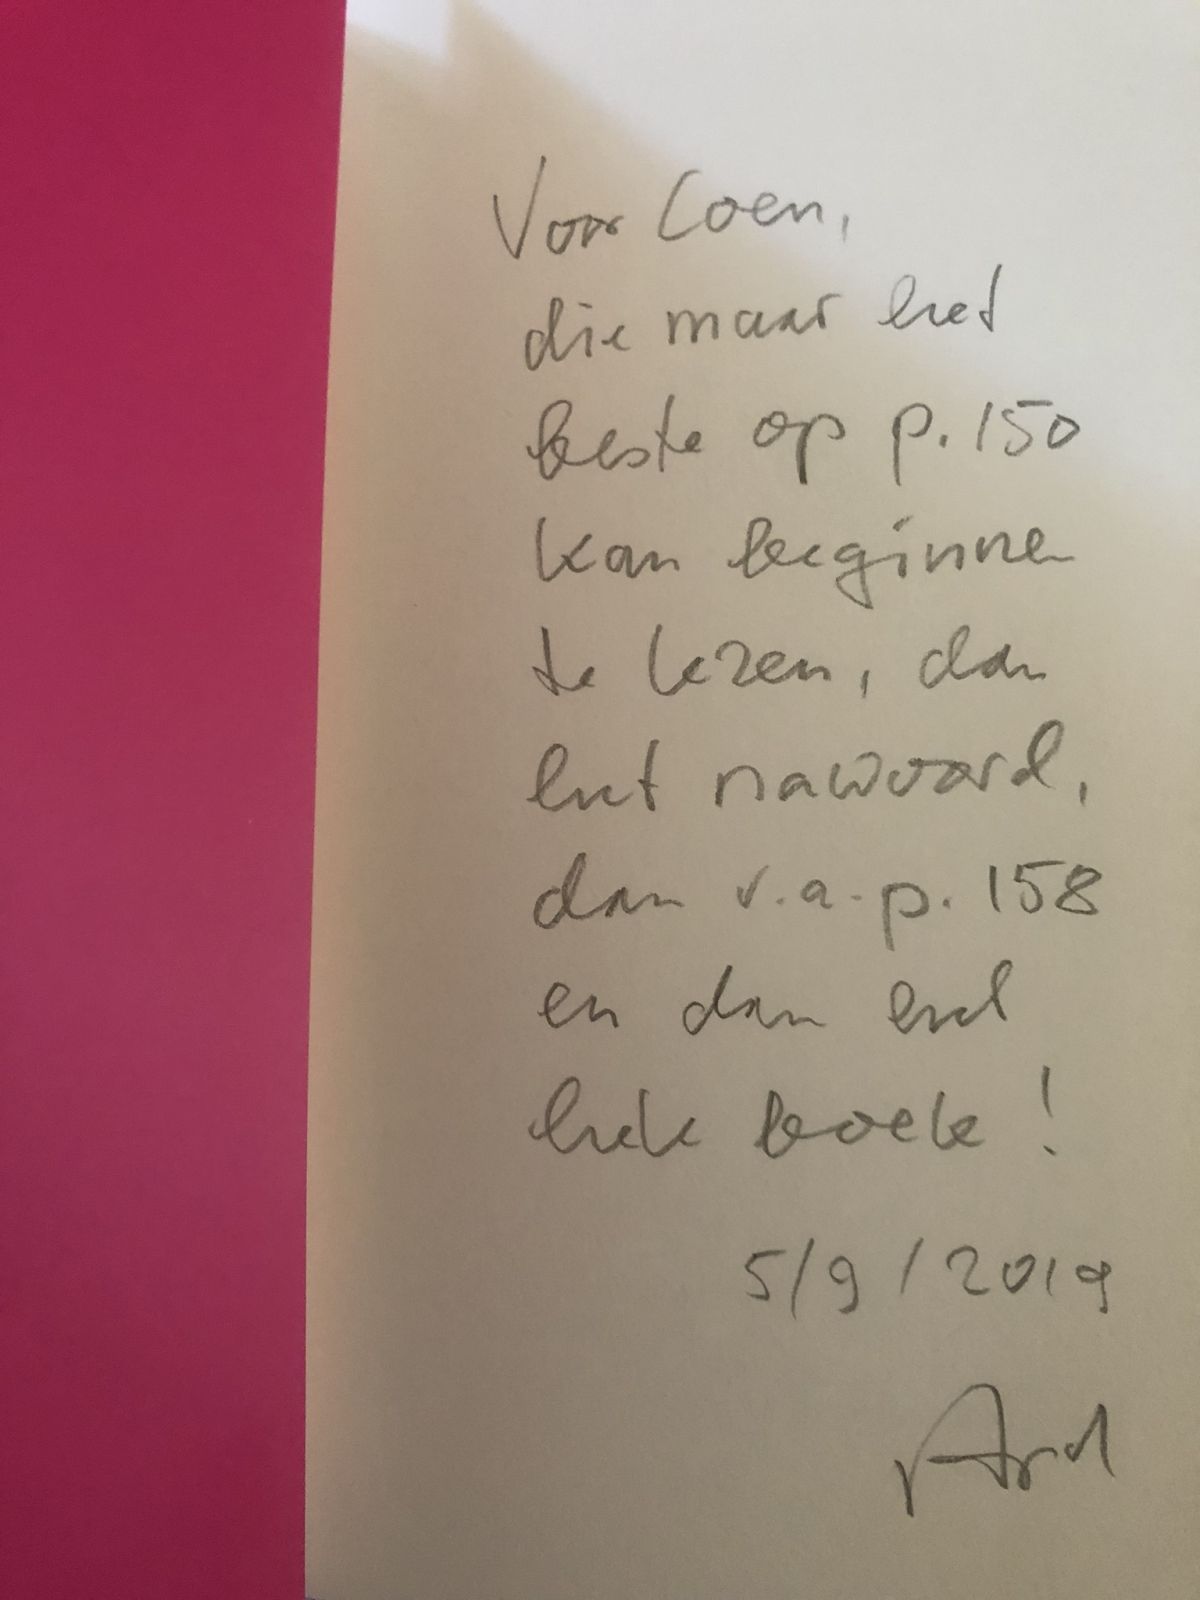 Voor Coen,
die maar het
beste op p. 150
kan beginnen
te lezen, dan
het nawoord,
dan v.a. p. 158
en dan het
hele boek!
5/9/2019
Ard